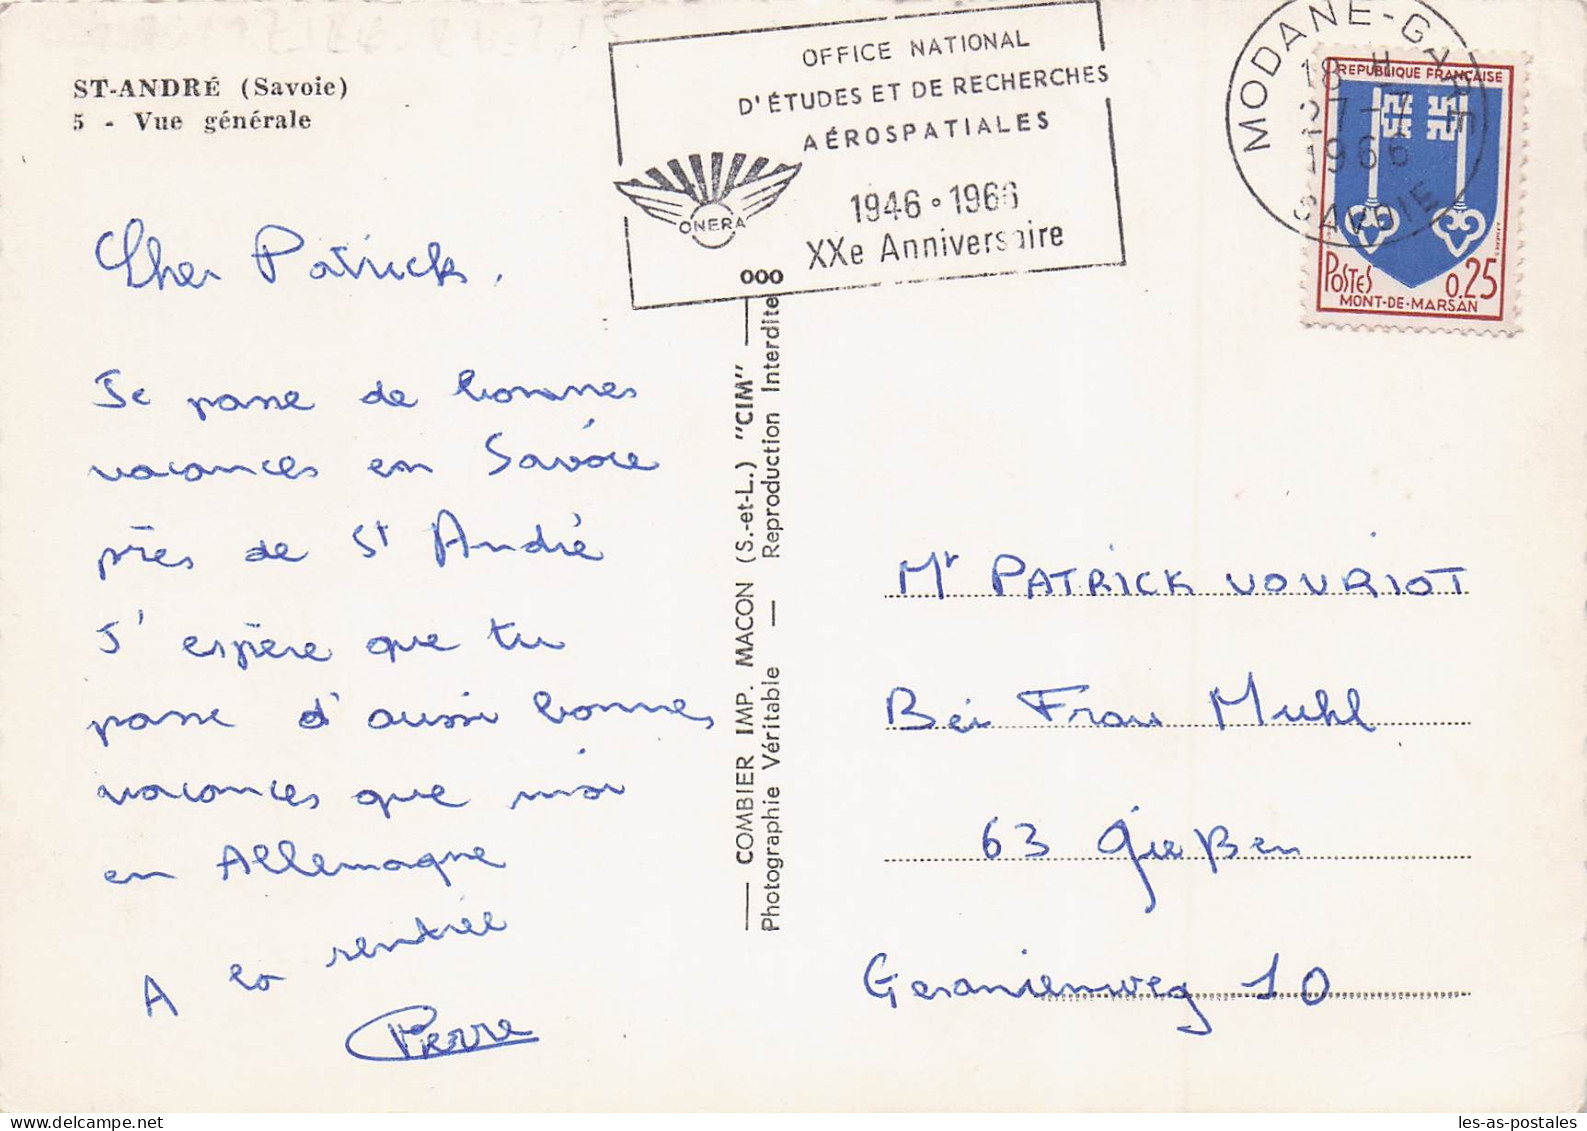 ST-ANDRÉ (Savoie)
5 - Vue générale
OFFICE NATIONAL
D'ÉTUDES ET DE RECHERCHES
AÉROSPATIALES
ONERA
1946 • 1966
XXe Anniversaire
MODANE-GARE
18 H
27-7
1966
SAVOIE
REPUBLIQUE FRANÇAISE
POSTES
0,25
MONT-DE-MARSAN
Cher Patrick,
Je passe de bonnes
vacances en Savoie
près de St André
J'espère que tu
passe d'aussi bonnes
vacances que moi
en Allemagne
A la rentrée
Pierre
000
— COMBIER IMP. MACON (S.-et-L.) "CIM" —
Photographie Véritable — Reproduction Interdite
Mr PATRICK VOURIOT
Bei Frau Muhl
63 Gießen
Geranienweg 10
les-as-postales